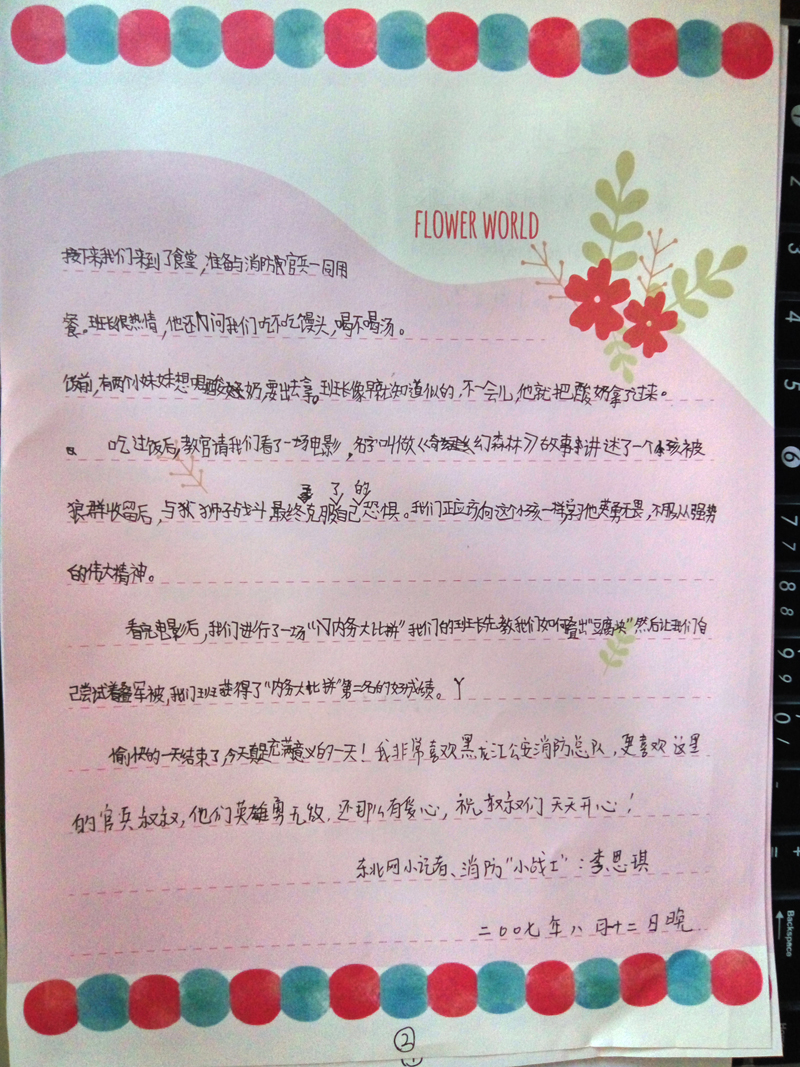 FLOWER WORLD
接下来我们来到了食堂,准备与消防官兵一同用
餐。班长很热情,他还问我们吃不吃馒头,喝不喝汤。
饭前,有两个小妹妹想喝酸奶,要出去拿。班长像早就知道似的,不一会儿,他就把酸奶拿了过来。
吃过饭后,教官请我们看了一场电影,名字叫做《奇幻森林》故事讲述了一个小孩被
狼群收留后,与狮子战斗最终克服了自己的恐惧。我们正应该向这个小孩一样,学习他英勇无畏,不服从强势
的伟大精神。
看完电影后,我们进行了一场"内务大比拼"我们的班长先教我们如何叠出"豆腐块"然后让我们自
己尝试着叠军被,我们班获得了"内务大比拼"第二名的好成绩。
愉快的一天结束了,今天真是充满意义的一天!我非常喜欢黑龙江公安消防总队,更喜欢这里
的官兵叔叔,他们英雄勇无敌,还那么有爱心,祝叔叔们天天开心!
东北网小记者、消防"小战士":李思琪
二00七年八月十二日晚
②
1
2
3
4
5
6
7
7
8
8
9
9
0
-
+
=
Backspace